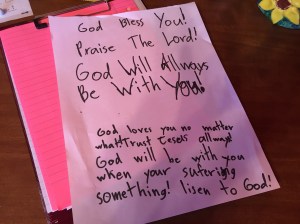 God Bless You!
Praise The Lord!
God Will Allways
Be With You!
God loves you no matter
what!Trust Jesus allways!
God will be with you
when your sufering
something! lisen to God!